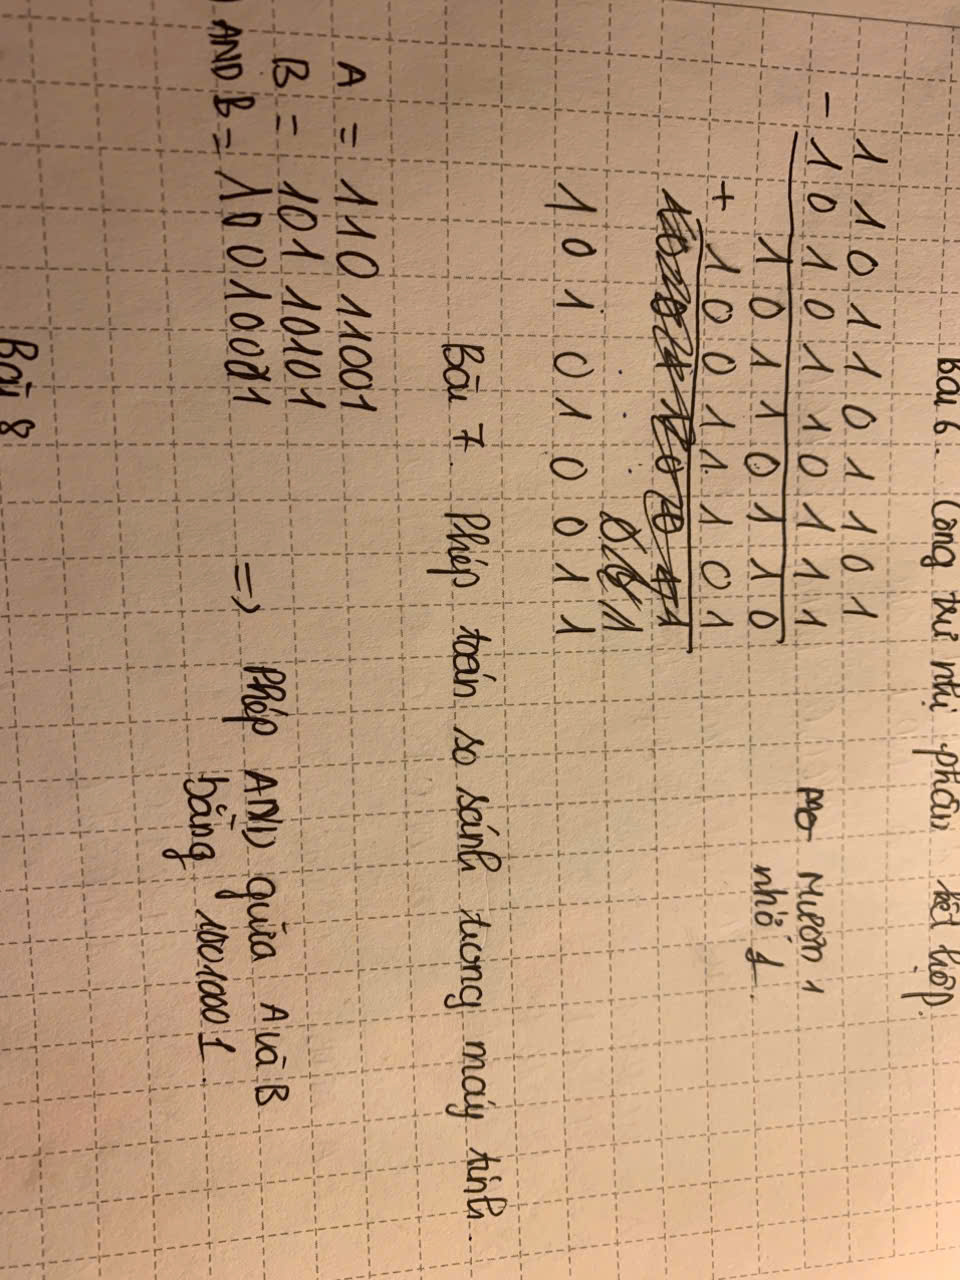 Bài 6. Cộng trừ nhị phân kết hợp.
1 1 0 1 1 0 1 1 0 1
- 1 0 1 0 1 1 0 1 1 1 Mượn 1
1 0 1 1 0 1 1 0 nhớ 1
+ 1 0 0 1 1 1 0 1
1 0 1 0 1 0 0 1 1
Bài 7. Phép toán so sánh trong máy tính.
A = 110 11001
B = 101 10101
AND B = 10010001
=> Phép AND giữa A và B
bằng 10010001.
Bài 8